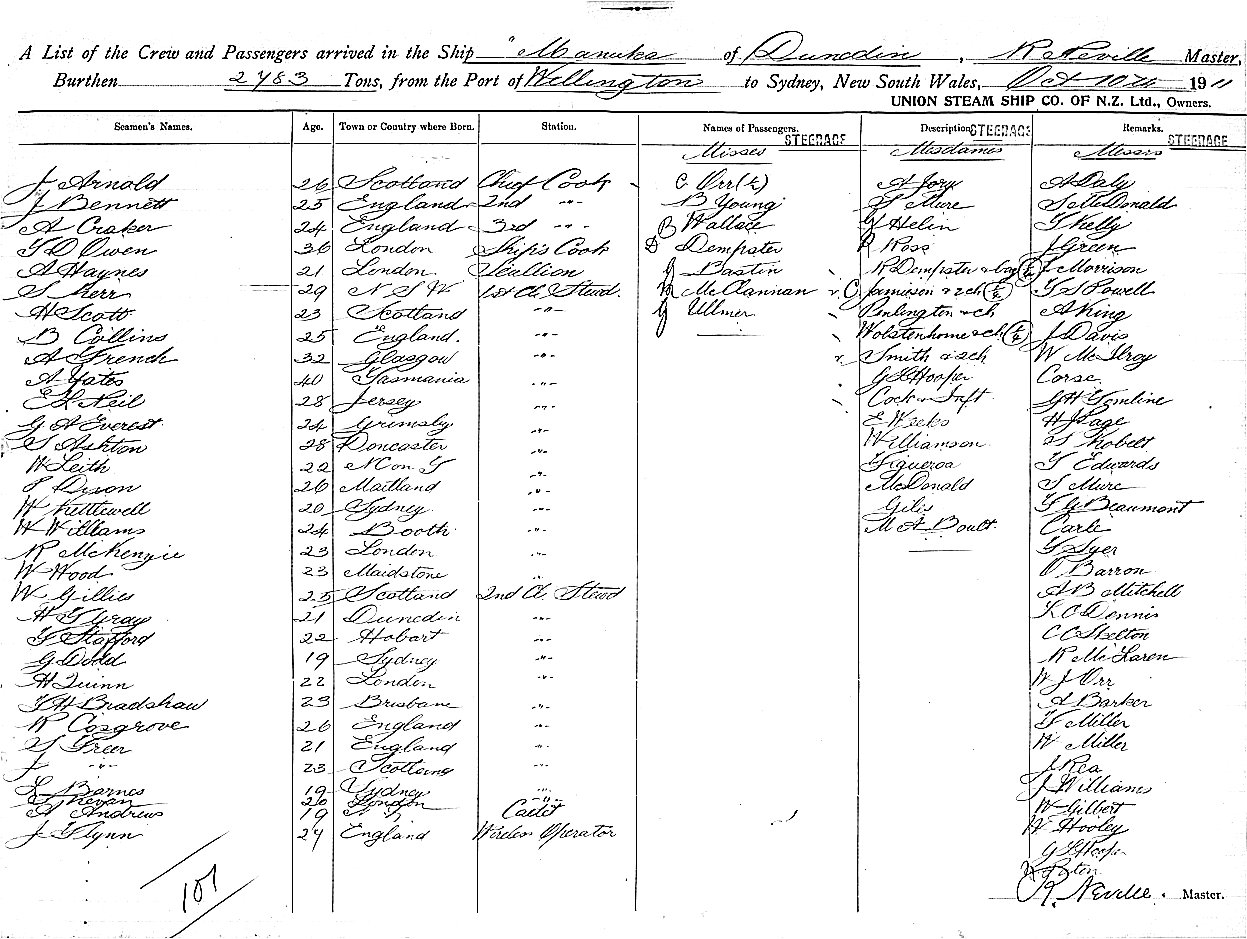 A List of the Crew and Passengers arrived in the Ship "Manuka of Dunedin, R Neville Master,
Burthen 2483 Tons, from the Port of Wellington to Sydney, New South Wales, Oct 10th 1911
UNION STEAM SHIP CO. OF N.Z. Ltd., Owners.
Seamen's Names. Age. Town or Country where Born. Station. Names of Passengers. STEERAGE Description STEERAGE Remarks. STEERAGE
Misses Mesdames Messrs
J Arnold 26 Scotland Chief Cook C Orr (½) A Jory A Daly
J Bennett 25 England 2nd -"- B Young T Mure S McDonald
A Craker 24 England 3rd -"- B Wallace J Helin T Kelly
T D Owen 36 London Ship's Cook D Dempster R Ross J Green
A Haynes 21 London Scullion J Bastin R Dempster & boy J Morrison
S Kerr 29 N S W 1st Cl. Stewd. M McClannan C Jamieson & 2ch T S Powell
H Scott 23 Scotland -"- J Ulmer Penlington & ch A King
B Collins 25 England. -"- Wolstenhome & ch J Davis
A French 32 Glasgow -"- Smith & 2ch W McIlroy
A Yates 40 Tasmania -"- G L Hooper Corse
E L Neil 28 Jersey -"- Cock & Inft G H Tomline
G A Everest 24 Grimsby -"- E Weeks H J Page
S Ashton 28 Doncaster -"- Williamson
W Leith 22 N Con. T -"- Figueroa T Edwards
Dixon 26 Maitland -"- McDonald S Mure
W Kettlewell 20 Sydney -"- Giles T G Beaumont
W Williams 24 Booth -"- M A Boult Carle
R McKenzie 23 London -"- Syer
W Wood 23 Maidstone -"- O Barron
W Gillies 25 Scotland 2nd Cl. Stewd A B Mitchell
H T Gray 21 Dunedin -"- L C Dennis
T Stafford 22 Hobart -"- C C Skelton
G Dodd 19 Sydney -"- R McLaren
H Quinn 22 London -"- W J Orr
T H Bradshaw 23 Brisbane -"- A Barker
R Cosgrove 26 England -"- T Miller
Freer 21 England -"- W Miller
J -"- 23 Scotland -"- J Rea
L Barnes 19 Sydney -"- J Williams
T Kevan 20 London -"- W Gilbert
A Andrews 19 Cadet W Hooley
J Flynn 24 England Wireless Operator G L Hooper
107
R. Neville. Master.